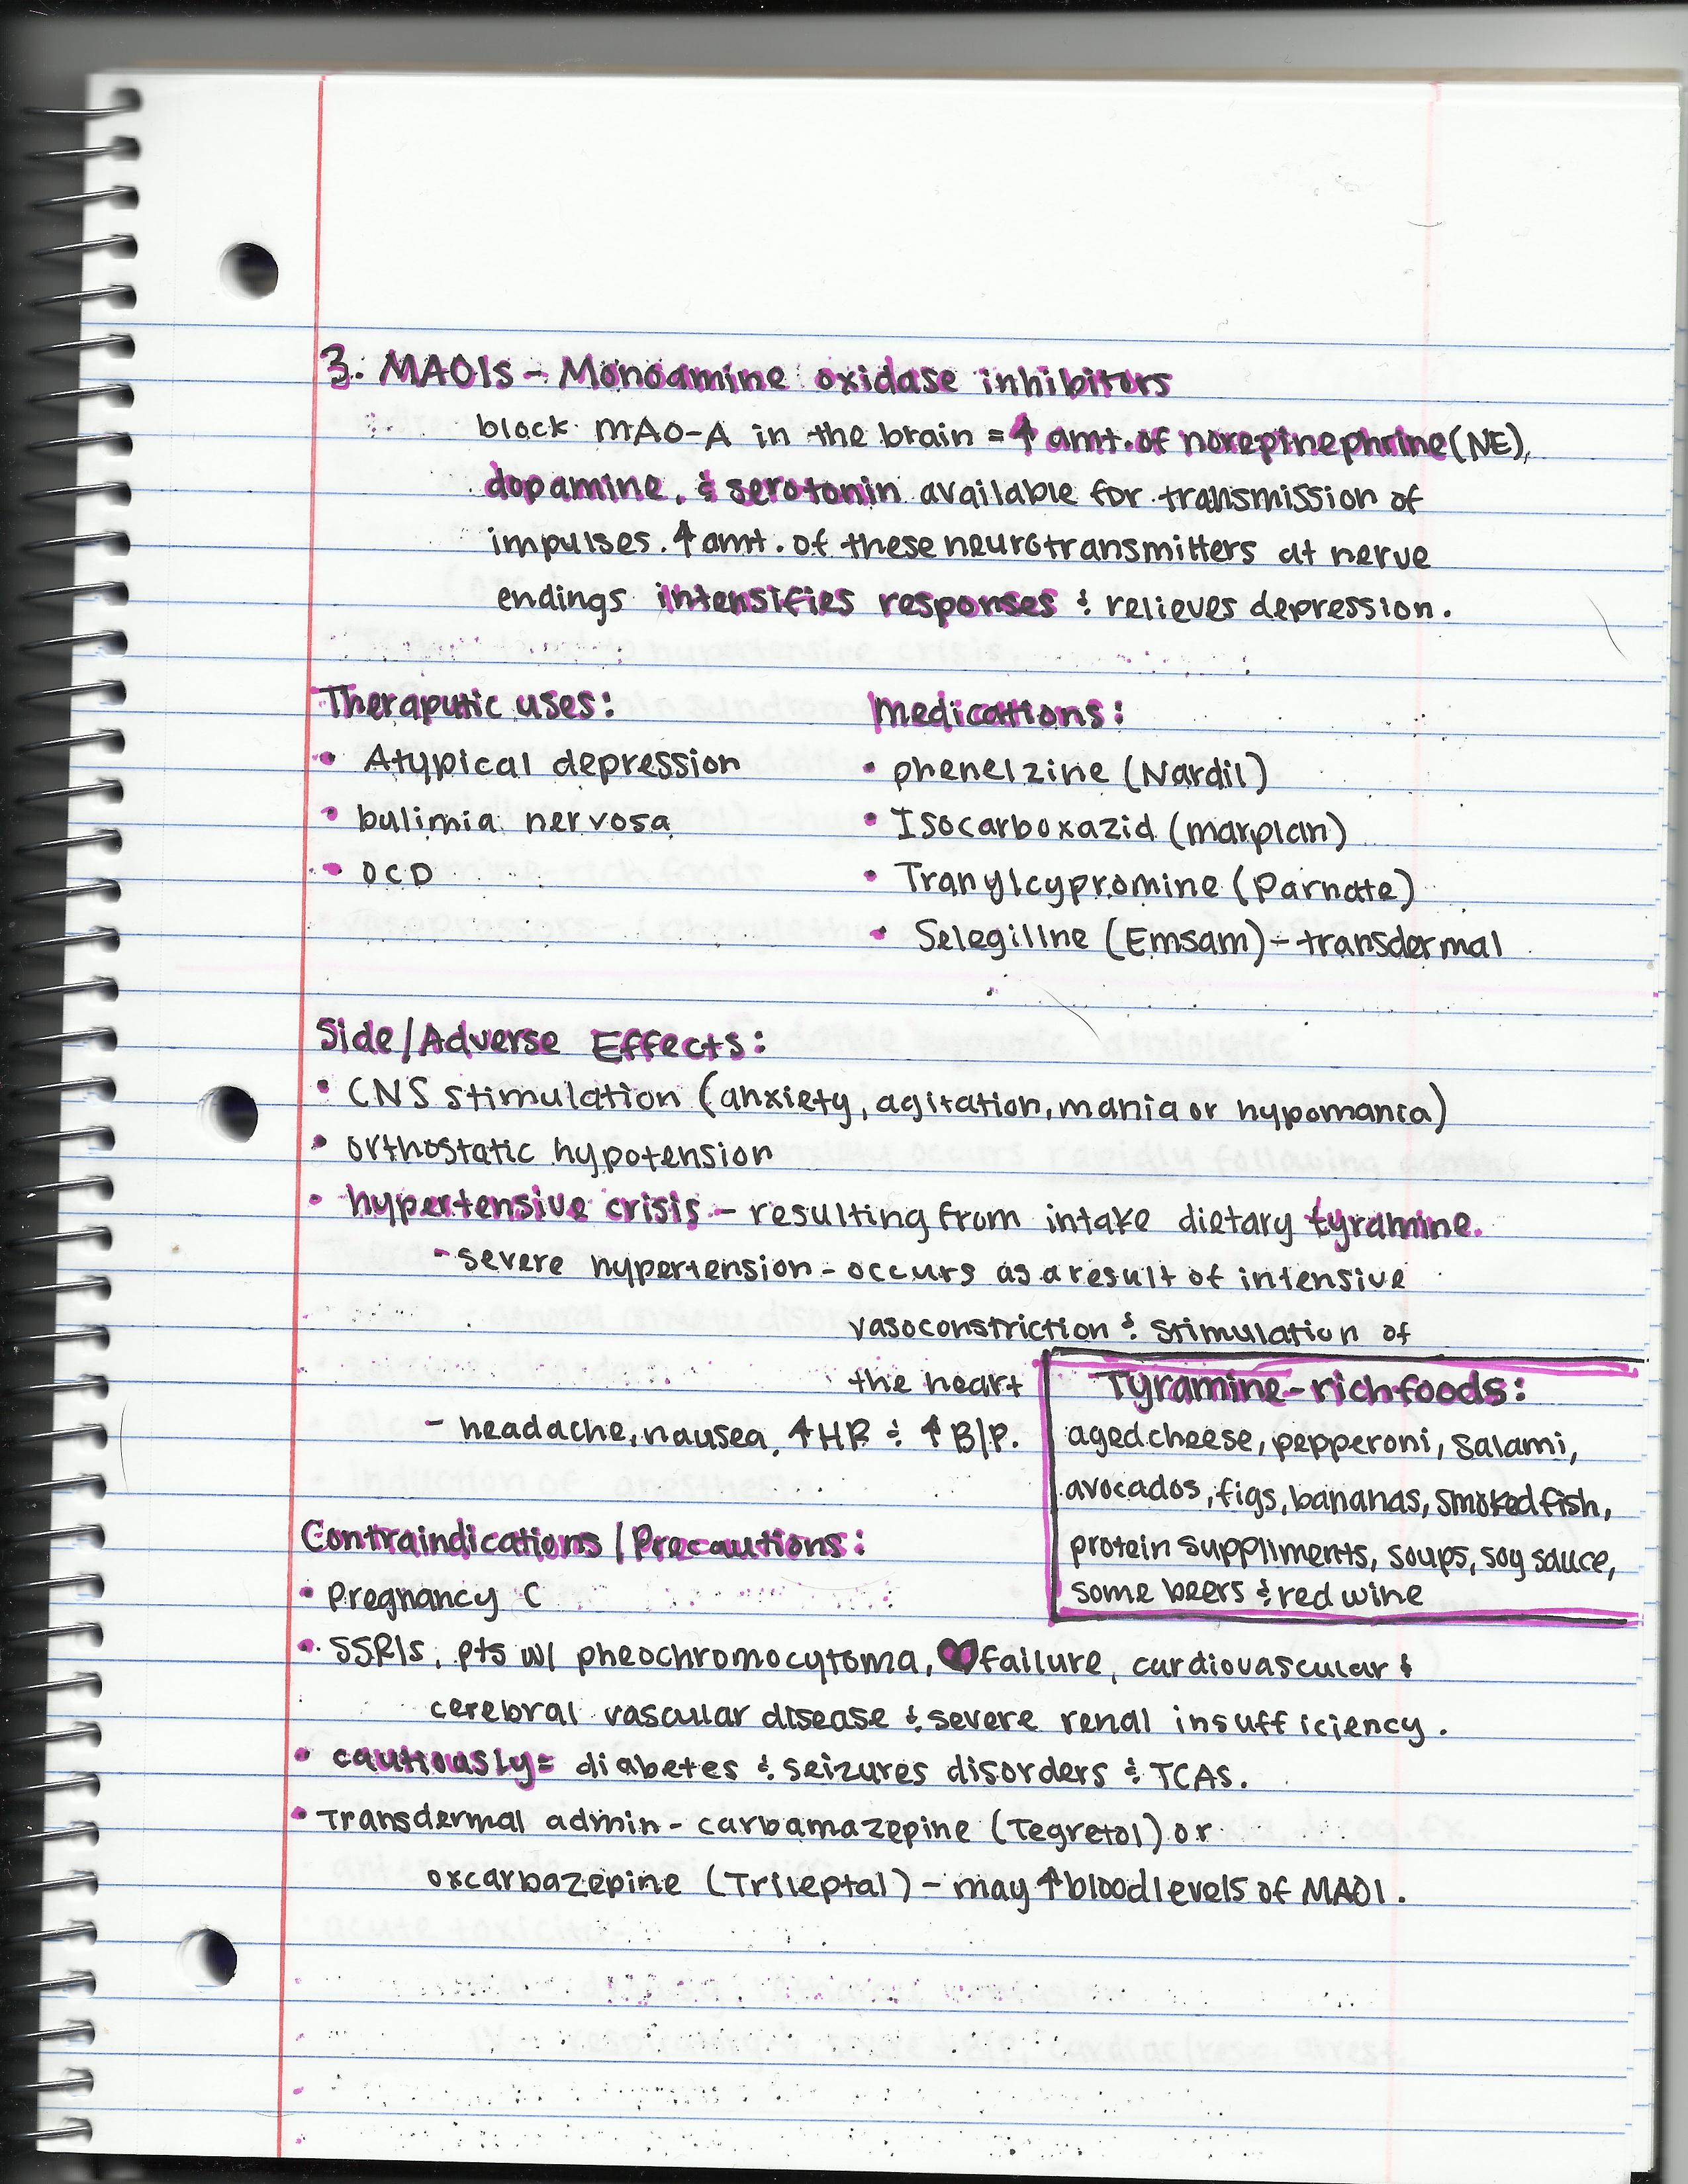 3. MAOIs - Monoamine oxidase inhibitors
block MAO-A in the brain = ↑ amt. of norepinephrine (NE),
dopamine, & serotonin available for transmission of
impulses. ↑ amt. of these neurotransmitters at nerve
endings intensifies responses & relieves depression.
Theraputic uses:
• Atypical depression
• bulimia nervosa
• OCD
Medications:
• phenelzine (Nardil)
• Isocarboxazid (marplan)
• Tranylcypromine (Parnate)
• Selegiline (Emsam) - transdermal
Side/Adverse Effects:
• CNS stimulation (anxiety, agitation, mania or hypomania)
• orthostatic hypotension
• hypertensive crisis - resulting from intake dietary tyramine.
- severe hypertension - occurs as a result of intensive
vasoconstriction & stimulation of
the heart
- headache, nausea, ↑HR & ↑B/P.
Tyramine-rich foods:
aged cheese, pepperoni, salami,
avocados, figs, bananas, smoked fish,
protein suppliments, soups, soy sauce,
some beers & red wine
Contraindications/Precautions:
• Pregnancy C
• SSRIs, pts w/ pheochromocytoma, ♥ failure, cardiovascular &
cerebral vascular disease & severe renal insufficiency.
• cautiously = diabetes & seizures disorders & TCAs.
• Transdermal admin - carbamazepine (Tegretol) or
oxcarbazepine (Trileptal) - may ↑ blood levels of MAOI.